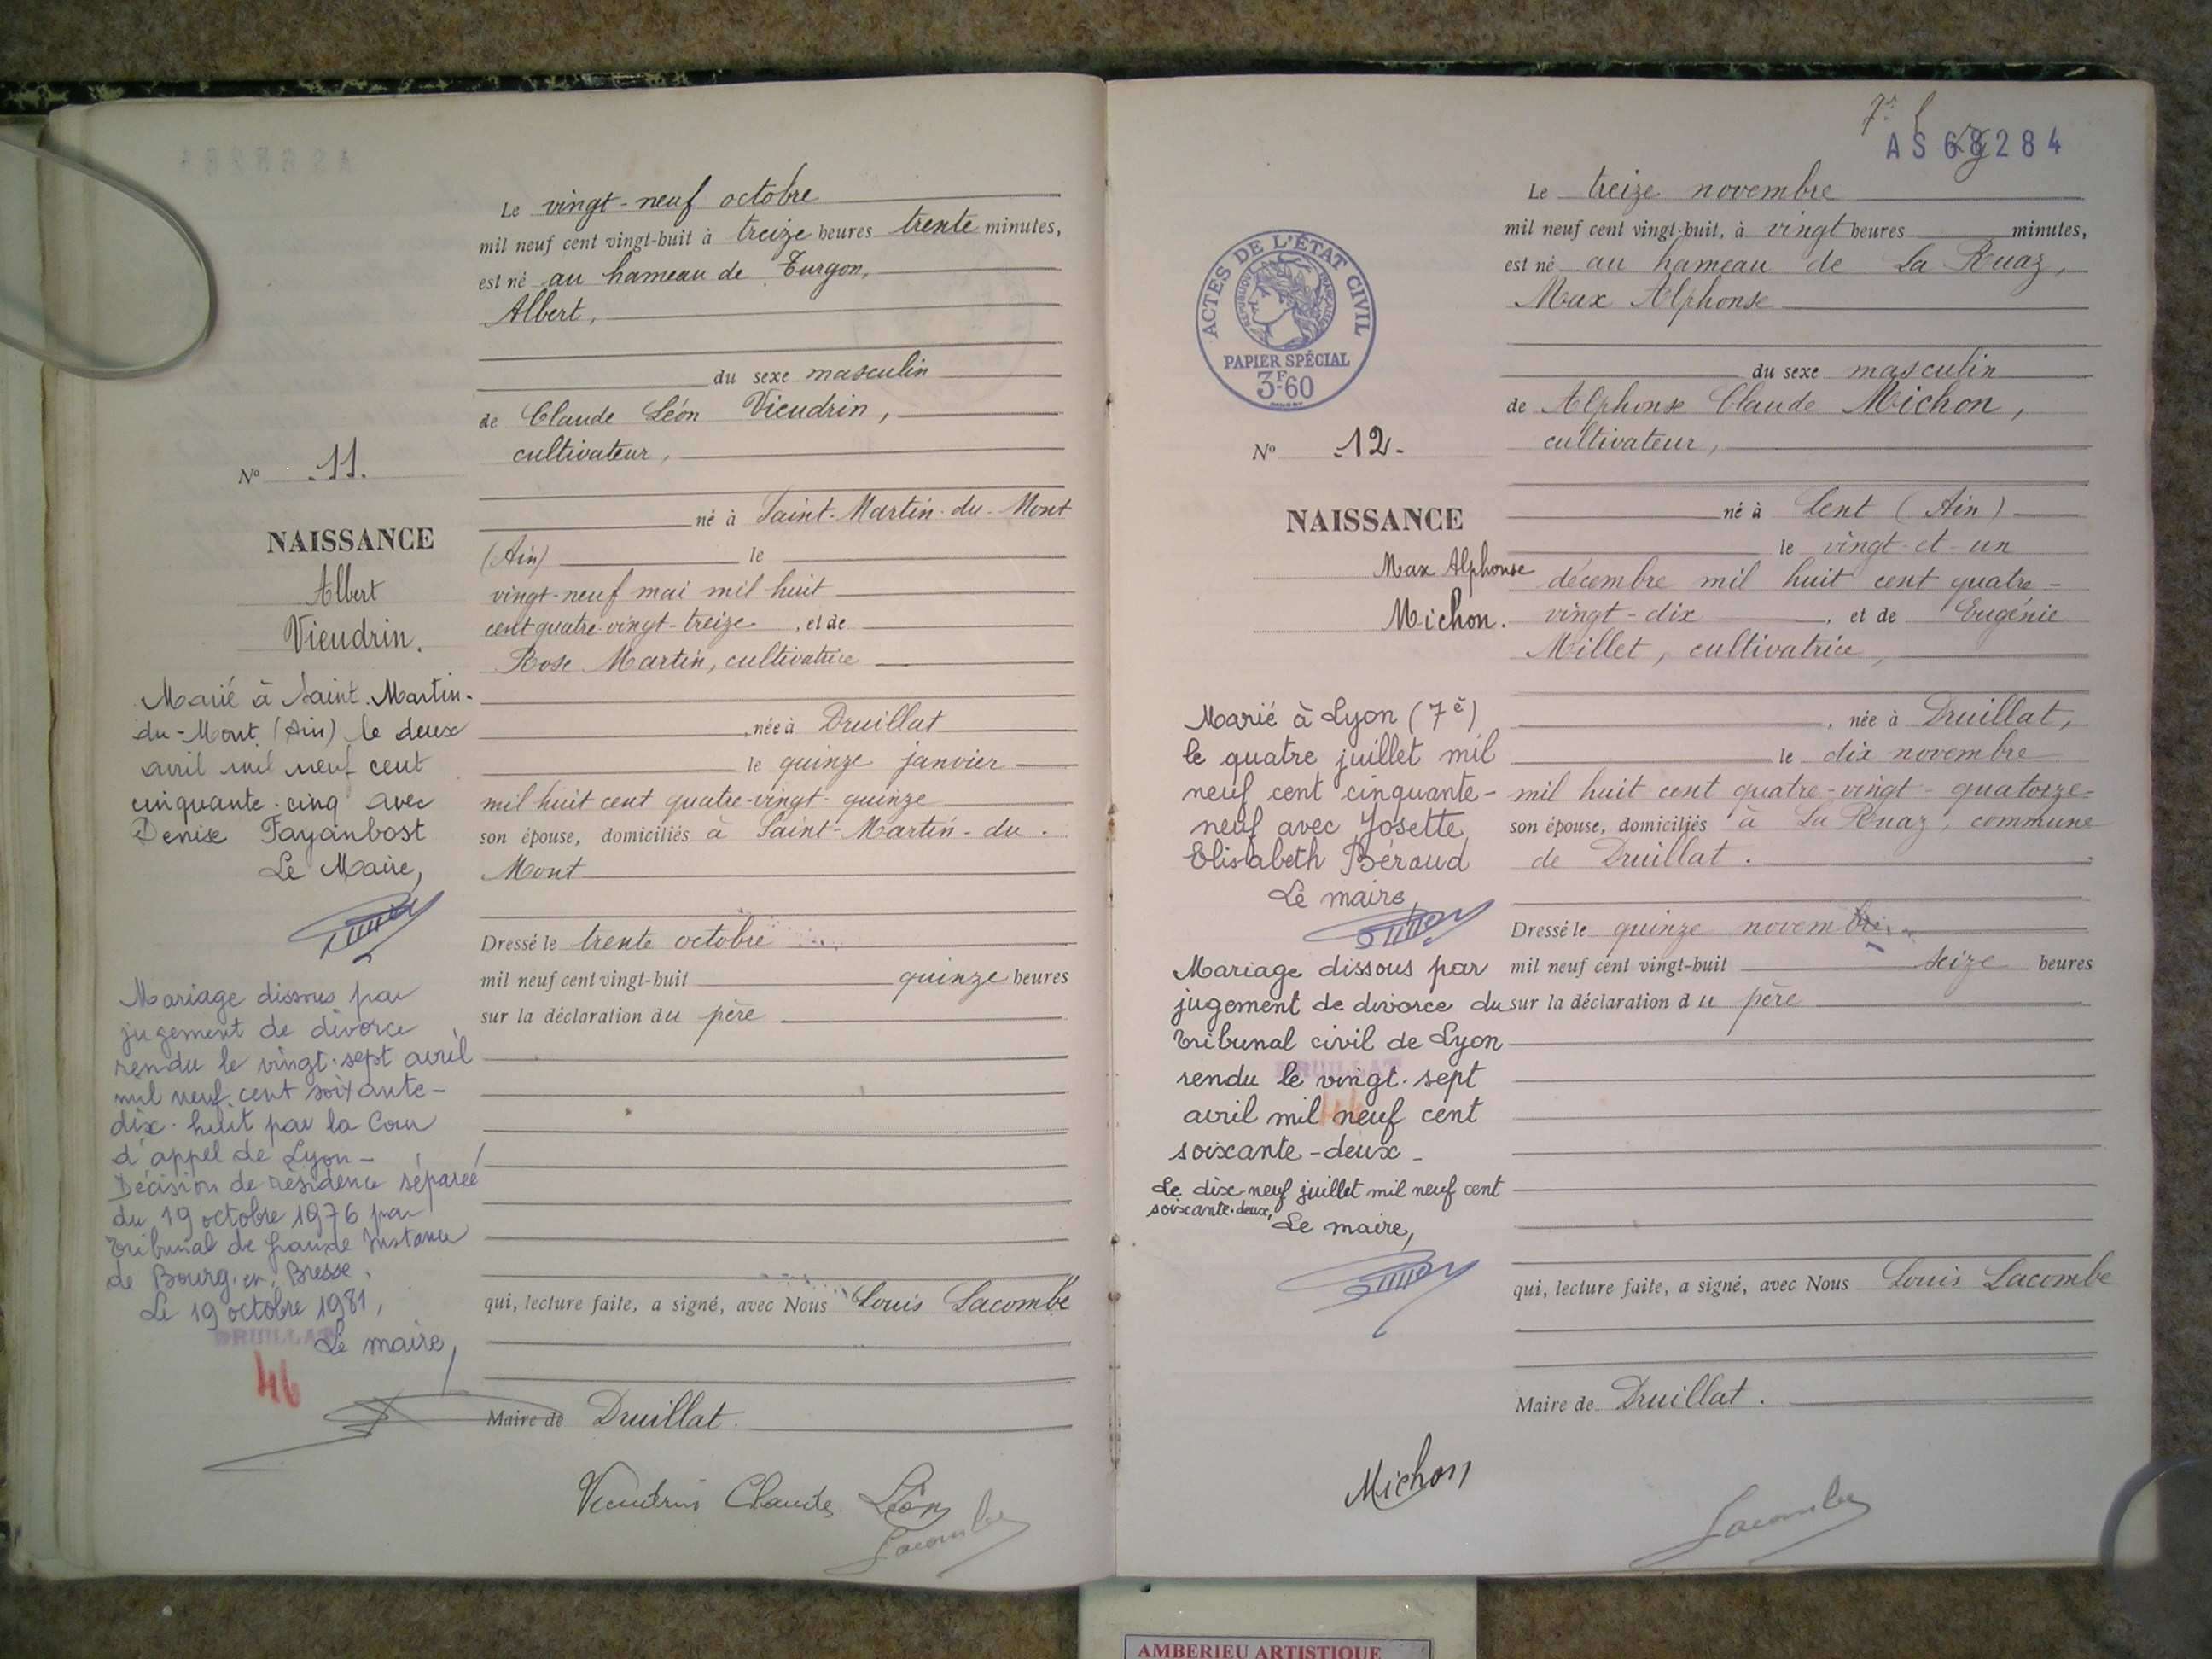 Le vingt-neuf octobre
mil neuf cent vingt-huit à treize heures trente minutes,
est né au hameau de Turgon,
Albert,
du sexe masculin
de Claude Léon Vieudrin,
cultivateur,
né à Saint-Martin-du-Mont
(Ain) le
vingt-neuf mai mil huit
cent quatre-vingt-treize, et de
Rose Martin, cultivatrice
, née à Druillat
le quinze janvier
mil huit cent quatre-vingt-quinze
son épouse, domiciliés à Saint-Martin-du-
Mont
Dressé le trente octobre
mil neuf cent vingt-huit quinze heures
sur la déclaration du père
qui, lecture faite, a signé, avec Nous Louis Lacombe
Maire de Druillat.
Vieudrin Claude Léon
Lacombe
N° 11.
NAISSANCE
Albert
Vieudrin.
Marié à Saint-Martin-
du-Mont (Ain) le deux
avril mil neuf cent
cinquante-cinq avec
Denise Fayanbost
Le Maire,
Mariage dissous par
jugement de divorce
rendu le vingt-sept avril
mil neuf cent soixante-
dix-huit par la Cour
d'appel de Lyon-
Décision de résidence séparée
du 19 octobre 1976 par
Tribunal de Grande Instance
de Bourg-en-Bresse.
Le 19 octobre 1981,
DRUILLAT
Le maire,
46
AS68284
Le treize novembre
mil neuf cent vingt-huit, à vingt heures minutes,
est né au hameau de La Ruaz,
Max Alphonse
du sexe masculin
de Alphonse Claude Michon,
cultivateur,
né à Lent (Ain)
le vingt-et-un
décembre mil huit cent quatre-
vingt-dix, et de Eugénie
Millet, cultivatrice,
, née à Druillat,
le dix novembre
mil huit cent quatre-vingt-quatorze
son épouse, domiciliés à La Ruaz, commune
de Druillat.
Dressé le quinze novembre
mil neuf cent vingt-huit seize heures
sur la déclaration du père
qui, lecture faite, a signé, avec Nous Louis Lacombe
Maire de Druillat.
Michon
Lacombe
ACTES DE L'ÉTAT CIVIL
RÉPUBLIQUE FRANÇAISE
PAPIER SPÉCIAL
3F60
N° 12.
NAISSANCE
Max Alphonse
Michon.
Marié à Lyon (7è)
le quatre juillet mil
neuf cent cinquante-
neuf avec Josette
Elisabeth Béraud
Le maire,
Mariage dissous par
jugement de divorce du
Tribunal civil de Lyon
DRUILLAT
rendu le vingt-sept
avril mil neuf cent
soixante-deux-
Le dix-neuf juillet mil neuf cent
soixante-deux,
Le maire,
AMBERIEU ARTISTIQUE